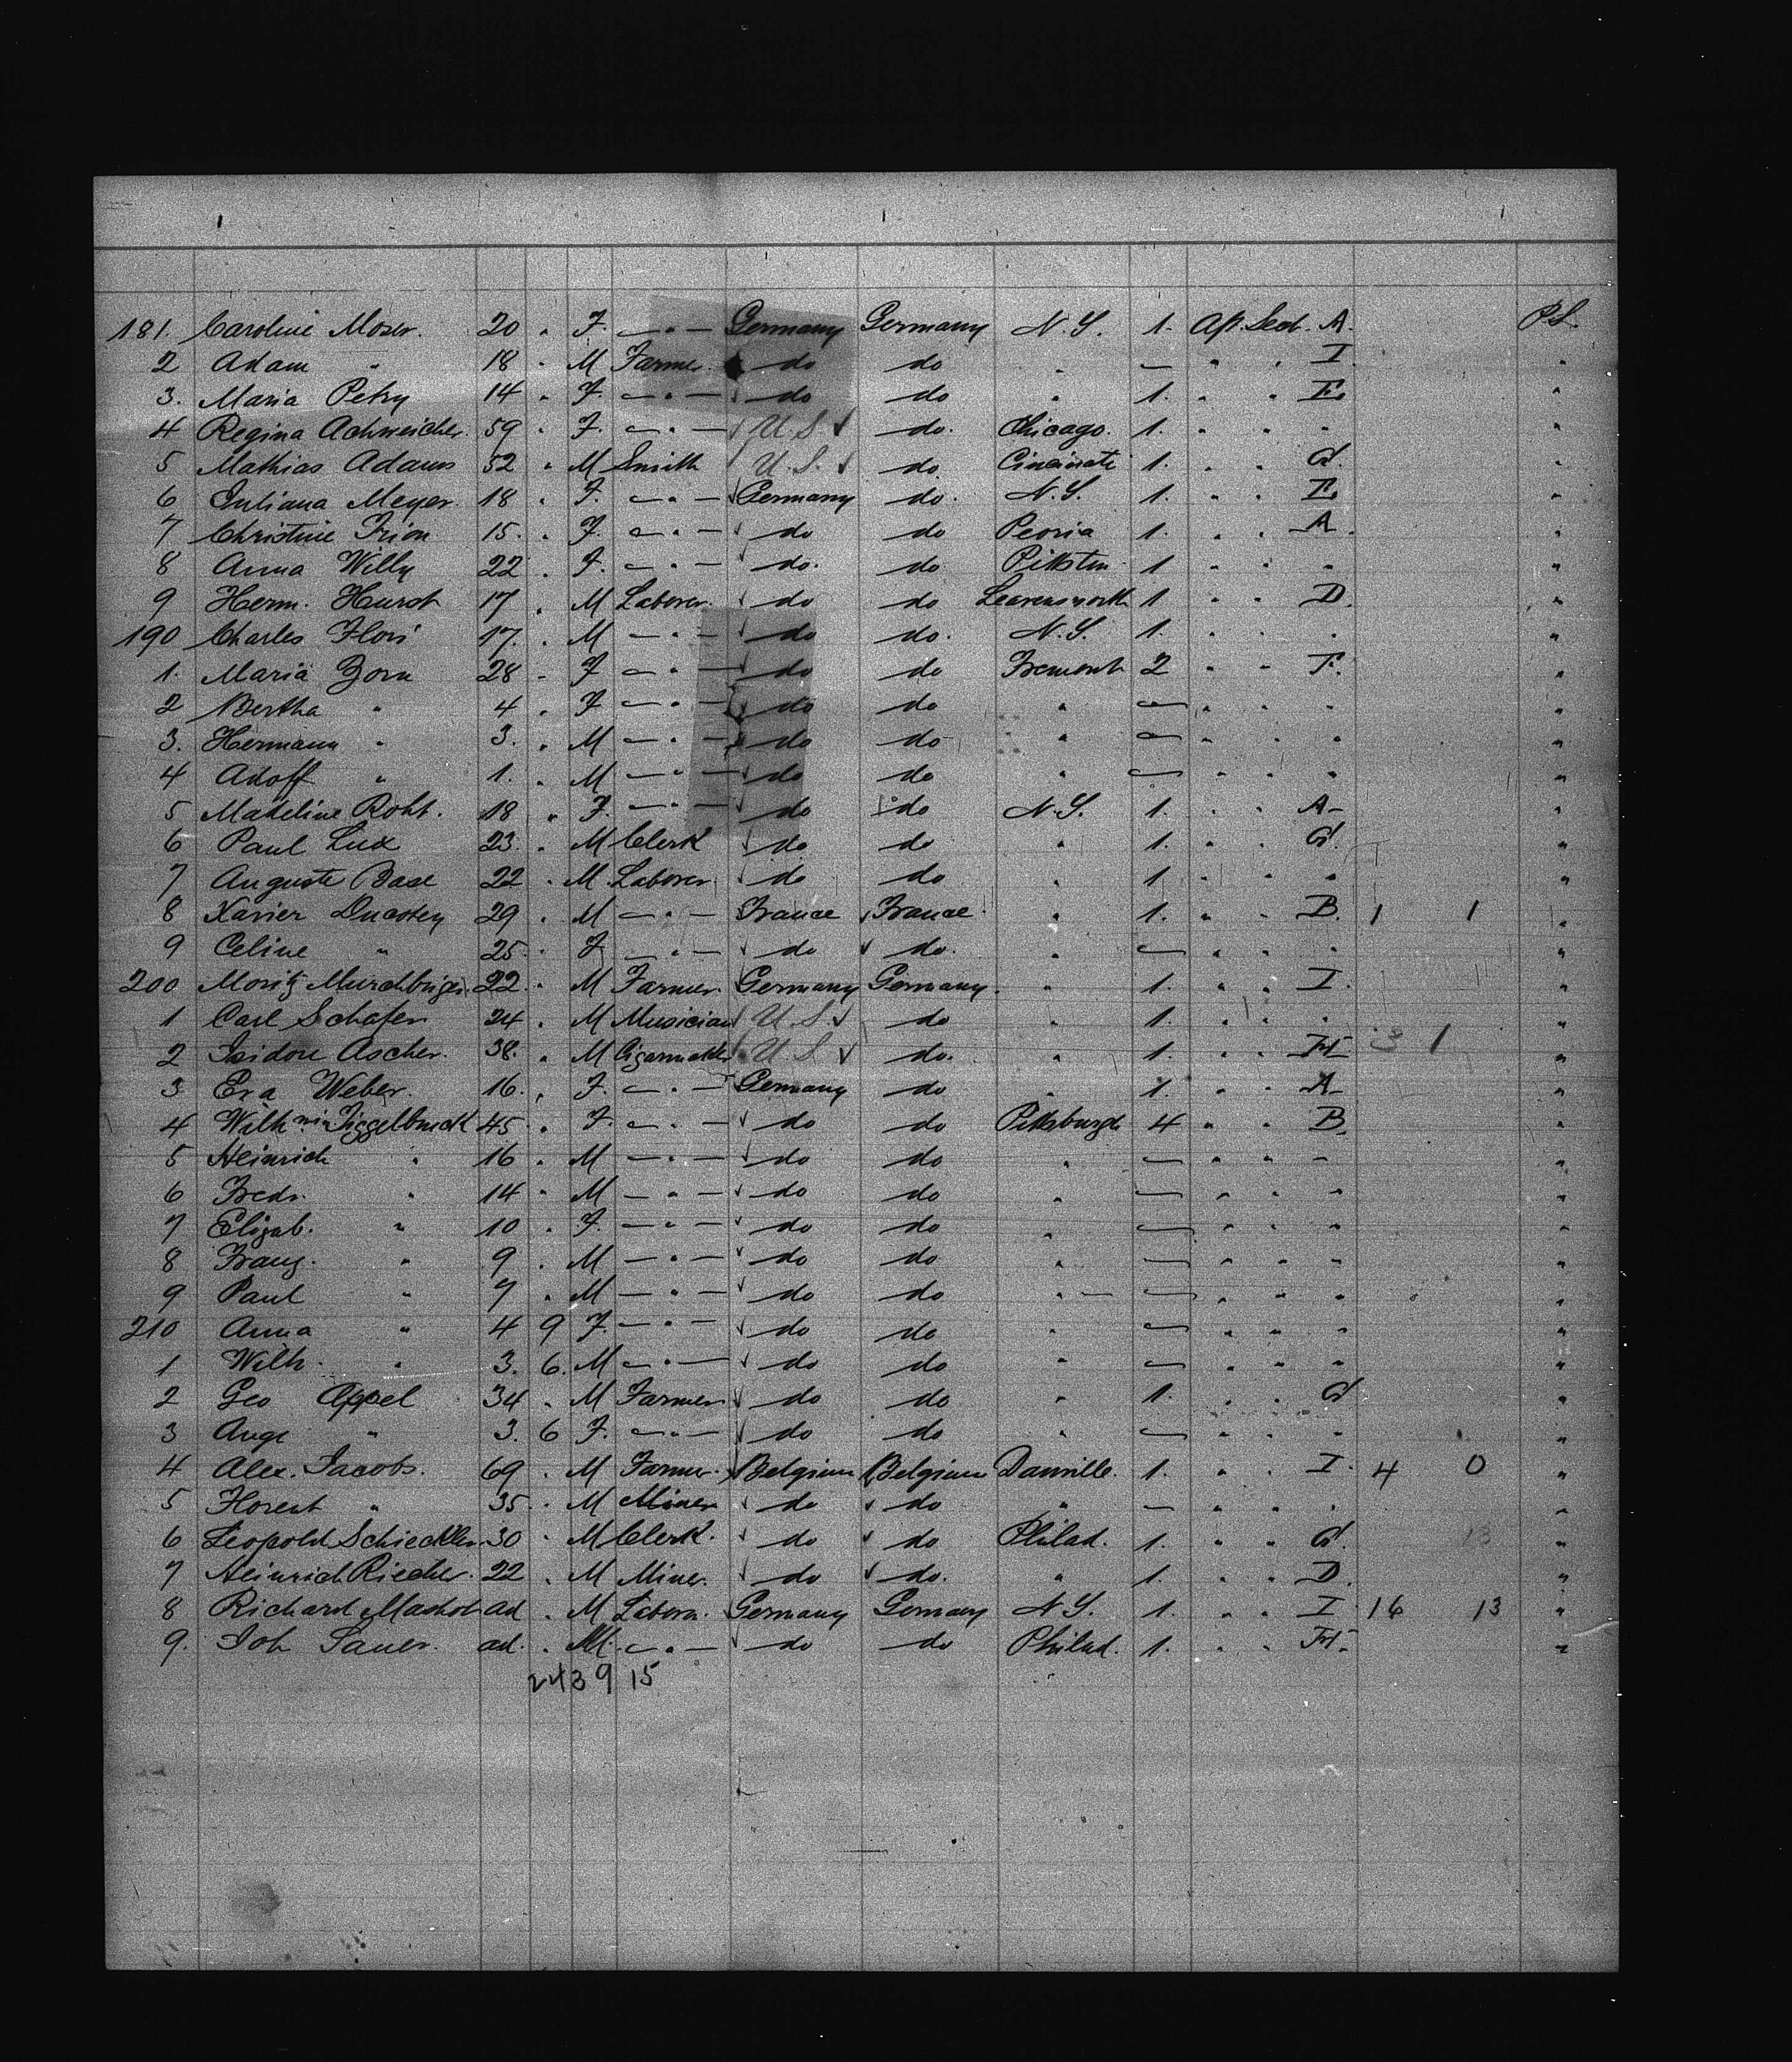 181. Caroline Moser. 20 " F. — " — Germany Germany N.Y. 1. Aft. Sect. A. P.S.
2 Adam " 18 " M Farmer do do " — " " I "
3. Maria Petry 14 " F. — " — do do " 1. " " E. "
4 Regina Achweicher. 59 " F. — " — U.S. do. Chicago. 1. " " " "
5 Mathias Adams 52 " M Smith U.S. do Cincinati 1. " " G. "
6 Juliana Meyer. 18 " F. — " — Germany do. N.Y. 1. " " E. "
7 Christine Frion 15. " F. — " — do do Peoria 1. " " A. "
8 Anna Willy 22 " F. — " — do. do Pittston 1 " " " "
9 Herm. Hurst 17 " M Laborer. do do Leavensworth 1 " " D. "
190 Charles Flori 17. " M — " — do do. N.Y. 1. " " " "
1. Maria Zorn 28 " F — " — do do Fremont 2 " " F. "
2 Bertha " 4 " F — " — do do " — " " " "
3. Hermann " 3. " M — " — do do " — " " " "
4 Adolf " 1. " M — " — do do " — " " " "
5 Madeline Roht. 18 " F. — " — do do N.Y. 1. " " A "
6 Paul Lux 23. " M Clerk do do " 1. " " G. "
7 Auguste Base 22 " M. Laborer. do do " 1 " " " "
8 Xavier Ducostey 29 " M — " — France France " 1. " " B. 1 1 "
9 Celine " 25 " F — " — do do. " — " " " "
200 Moritz 22. " M Farmer. Germany Germany. " 1. " " I. "
1 Carl Schafer 24 " M Musician U.S. do " 1. " " " "
2 Isidore Ascher. 38. " M Cigarmaker U.S. do. " 1. " " H 3 1 "
3 Eva Weber. 16. " F. — " — Germany do " 1. " " A "
4 Wilhmin Figgelbruck 45 " F. — " — do do Pittsburgh 4 " " B. "
5 Heinrich " 16 " M — " — do do " — " " " "
6 Fredr. " 14 " M — " — do do " — " " " "
7 Elizab. " 10 " F. — " — do do " — " " " "
8 Franz. " 9 " M — " — do do " — " " " "
9 Paul " 7 " M — " — do do " — " " " "
210 Anna " 4 9 F. — " — do do " — " " " "
1 Wilh. " 3. 6. M — " — do do " — " " " "
2 Geo Appel 34 " M Farmer do do " 1. " " G "
3 Auge " 3. 6 F. — " — do do " — " " " "
4 Alex. Jacobs. 69 " M Farmer. Belgium Belgium Danville. 1. " " I. 4 0 "
5 Florent " 35 " M Miner do do " — " " " "
6 Leopold Schieckler. 30 " M Clerk. do do Philad. 1. " " G. 13 "
7 Heinrich Riecher. 22 " M Miner. do do. " 1. " " D. "
8 Richard Mashol ad " M Labora. Germany Germany N.Y. 1. " " I 16 13 "
9. Joh Sauer. ad. " M. — " — do do Philad. 1. " " H. "
2439 15